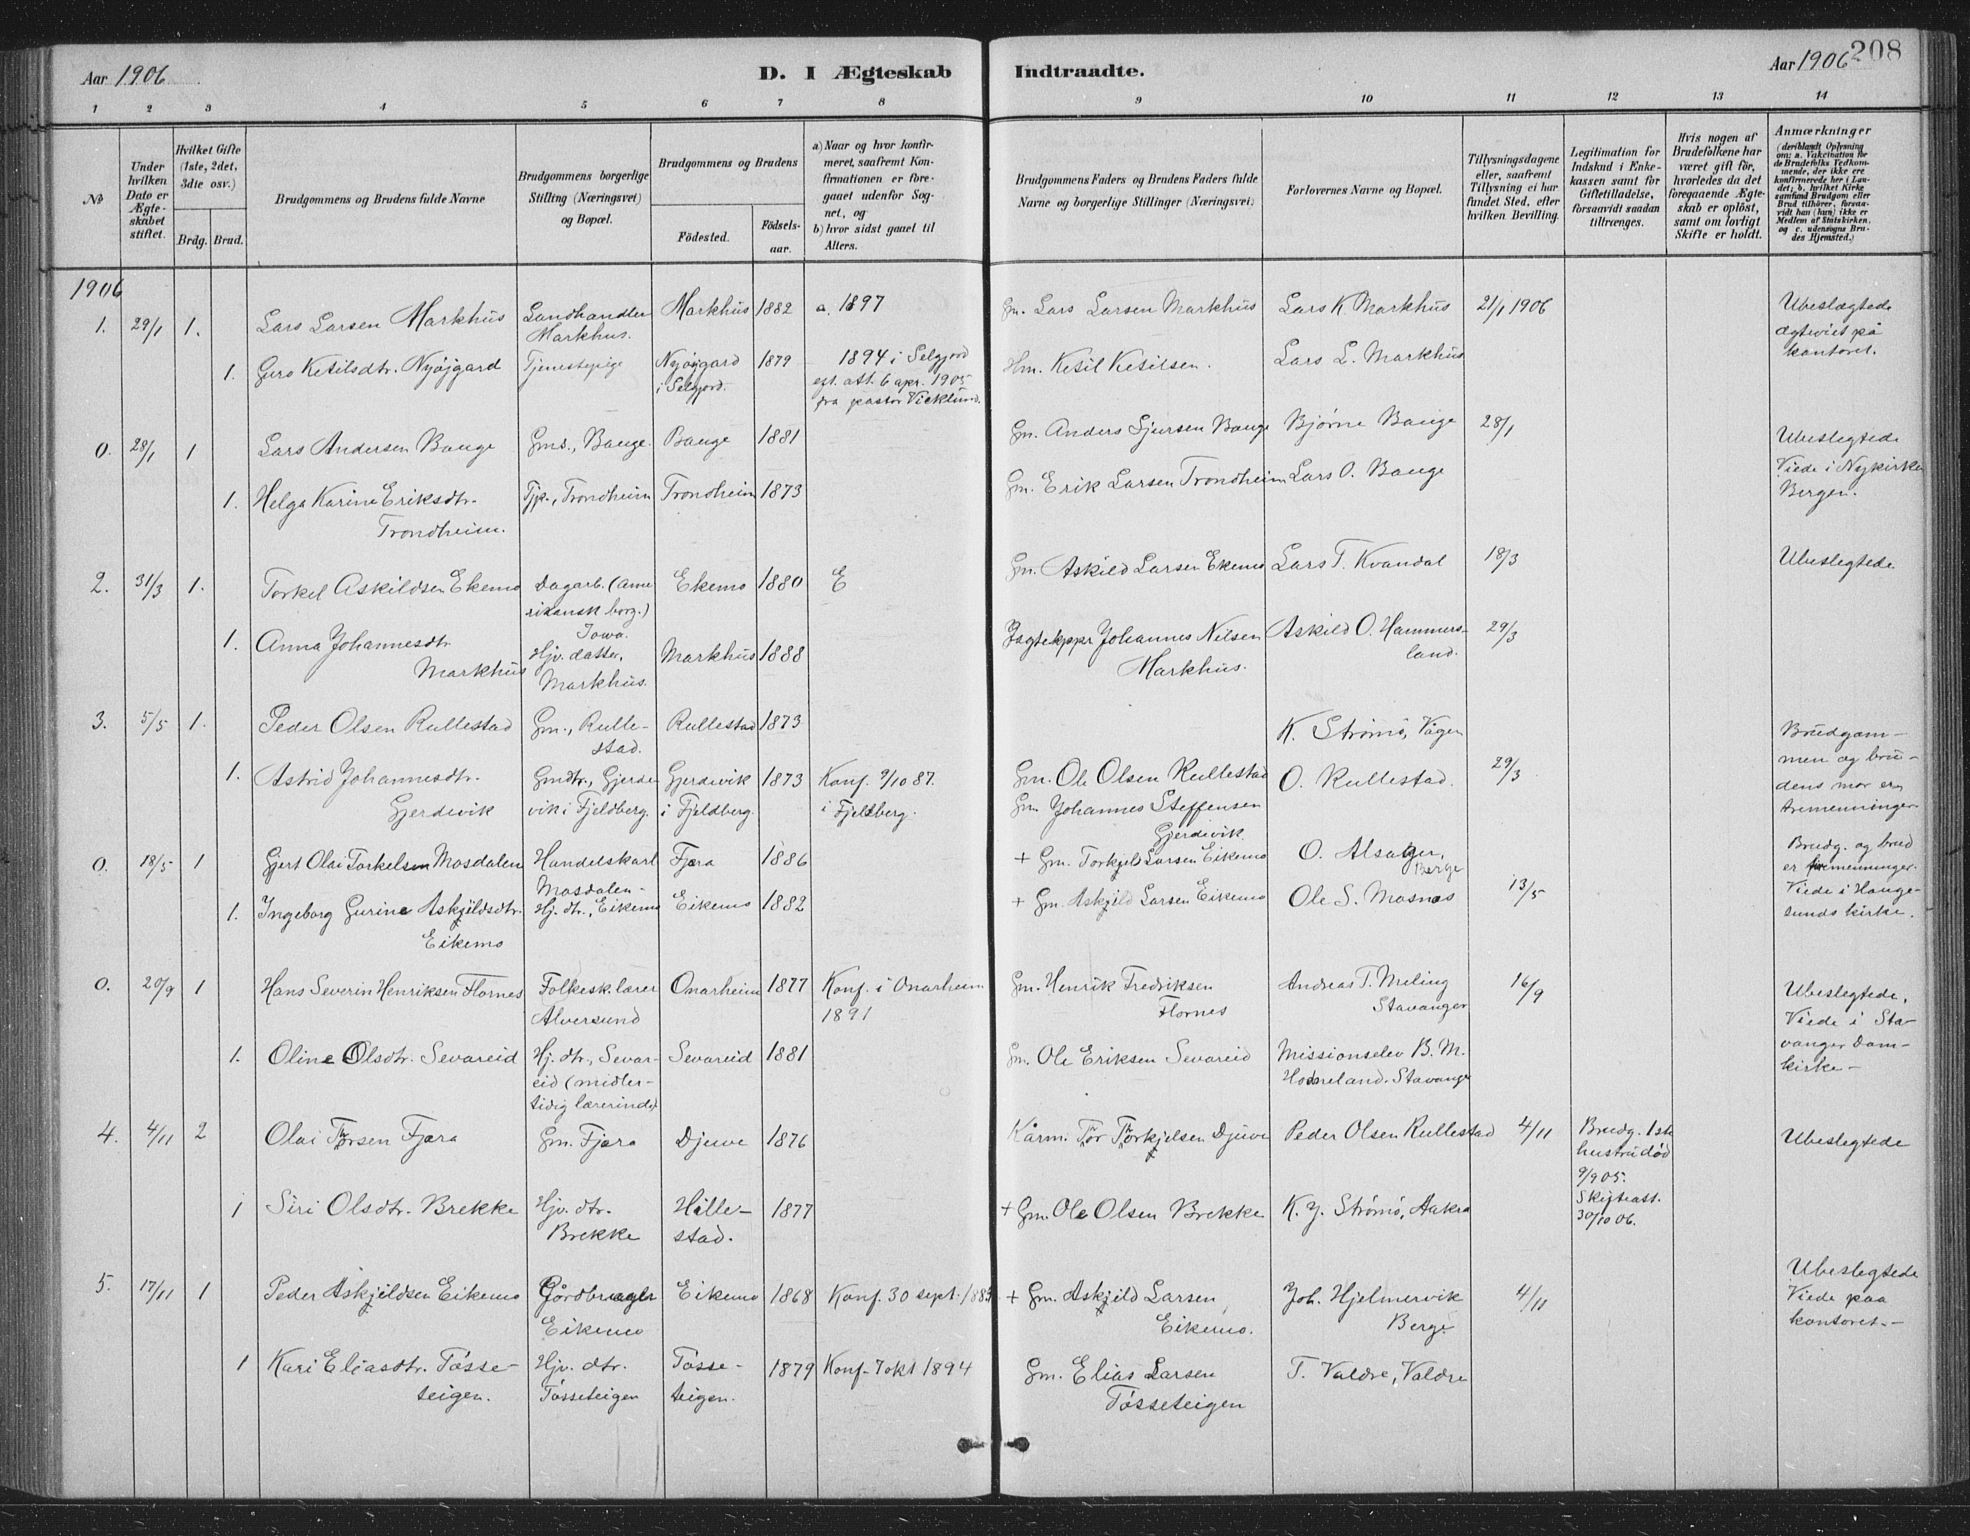 Aar 1906
D. I Ægteskab Indtraadte.
Aar 1906
208
1 2 3 4 5 6 7 8 9 10 11 12 13 14
No
Under hvilken Dato er Ægteskabet stiftet.
Hvilket Gifte (1ste, 2det, 3die osv.)
Brdg. Brud.
Brudgommens og Brudens fulde Navne
Brudgommens borgerlige Stilling (Næringsvei) og Bopæl.
Brudgommens og Brudens
Fødested.
Fødsels-aar.
a) Naar og hvor konfirmeret, saafremt Konfirmationen er foregaaet udenfor Sognet, og
b) hvor sidst gaaet til Alters.
Brudgommens Faders og Brudens Faders fulde Navne og borgerlige Stillinger (Næringsvei.)
Forlovernes Navne og Bopæl.
Tillysningsdagene eller, saafremt Tillysning ei har fundet Sted, efter hvilken Bevilling.
Legitimation for Indskud i Enkekassen samt for Giftetilladelse, forsaavidt saadan tiltrænges.
Hvis nogen af Brudefolkene har været gift før, hvorledes da det foregaaende Ægteskab er opløst, samt om lovligt Skifte er holdt.
Anmærkninger (deriblandt Oplysning om: a. Vakcination for de Brudefolks Vedkommende, der ikke ere konfirmerede her i Landet; b. hvilket Kirkesamfund Brudgom eller Brud tilhører, forsaavidt han (hun) ikke er Medlem af Statskirken, og c. udensogns Brudes Hjemsted.)
1906
1. 29/1 1. Lars Larsen Markhus Landhandler Markhus. Markhus 1882 a. 1897 Gm. Lars Larsen Markhus Lars K. Markhus 21/1 1906 Ubeslægtede ægteviet på kontoret.
1. Guro Ketilsdtr. Nyøjgard Tjenestepige Nyøjgard i Selgjord. 1879 1894 i Selgjord egt. att. 6 apr. 1905 fra pastor Vicklund. Hm. Ketil Ketilsen. Lars L. Markhus
0. 28/1 1 Lars Andersen Bauge Gms., Bauge. Bauge 1881 Gm. Anders Sjursen Bauge Bjørne Bauge 28/1 Ubeslegtede Viede i Nykirken Bergen.
1. Helga Karine Eriksdtr. Trondheim. Tjp., Trondheim Trondheim 1873 Gm. Erik Larsen Trondheim Lars O. Bauge
2. 31/3 1. Torkel Askildsen Ekemo Dagarb. (amerikansk borg.) Iowa. Ekemo 1880 E Gm. Askild Larsen Ekemo Lars T. Kvandal 18/3 Ubeslegtede
1. Anna Johannesdtr. Markhus Hjv. datter, Markhus. Markhus 1888 Jagtekppr Johannes Nilsen Markhus. Askild O. Hammersland. 29/3
3. 5/5 1. Peder Olsen Rullestad Gm., Rullestad. Rullestad 1873 Gm. Ole Olsen Rullestad K. Strømø, Vågen 29/3 Brudgommen og brudens mor er tremenninger
1. Astrid Johannesdtr. Gjerdevik Gmdtr., Gjerdevik i Fjeldberg. Gjerdevik i Fjeldberg. 1873 Konf. 9/10 87. i Fjeldberg. Gm. Johannes Steffensen Gjerdevik. O. Rullestad.
0. 18/5 1 Gjert Olai Torkelsen Mosdalen Handelskarl Mosdalen- Fjæra 1886 + Gm. Torkjel Larsen Eikemo O. Alsaker, Berge 13/5 Brudg. og brud er tremenninger. Viede i Haugesunds kirke.
1. Ingeborg Gurine Askjildsdtr. Eikemo Hj. dtr., Eikemo Eikemo 1882 + Gm. Askjild Larsen Eikemo Ole S. Mosnæs
0. 20/9 1 Hans Severin Henriksen Flornes Folkesk. lærer Alversund Onarheim 1877 Konf. i Onarheim 1891 Gm. Henrik Fredriksen Flornes Andreas T. Meling Stavanger 16/9 Ubeslegtede, Viede i Stavanger Domkirke-
1. Oline Olsdtr. Sevareid Hj. dtr., Sevareid (midlertidig lærerinde) Sevareid 1881 Gm. Ole Eriksen Sevareid Missionselev B. M. Stavanger
4. 4/11 2 Olai Thorsen Fjæra Gm. Fjæra Djuve 1876 Kårm. Tor Thorkjelsen Djuve Peder Olsen Rullestad 4/11 Brudg. 1ste hustru død 9/9 05. Skifteatt. 30/10 06. Ubeslegtede
1 Siri Olsdtr. Brekke Hjv. dtr. Brekke Hillestad. 1877 + Gm. Ole Olsen Brekke K. J. Strømø, Aakra
5. 17/11 1 Peder Askjeldsen Eikemo Gårdbruger Eikemo Eikemo 1868 Konf. 30 sept. 1883 + Gm. Askjeld Larsen Eikemo. Joh. Hjelmervik Berge 4/11 Ubeslegtede Viede paa kontoret.-
1 Kari Eliasdtr. Tøsseteigen. Hjv. dtr. Tøsseteigen Tøsseteigen. 1879 Konf. 7 okt 1894 Gm. Elias Larsen Tøsseteigen T. Valdre, Valdre